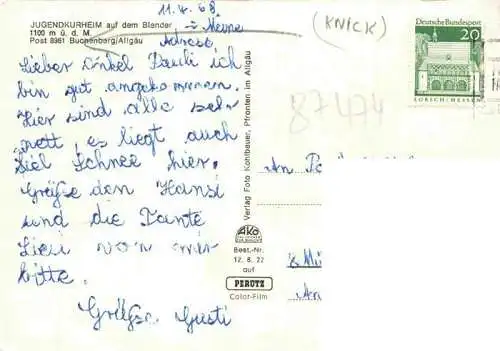 11.4.68
JUGENDKURHEIM auf dem Blender
1100 m ü. d. M.
Post 8961 Buchenberg/Allgäu
→ Meine
Adresse
Lieber Onkel Pauli ich
bin gut angekommen.
Hier sind alle sehr
nett, es liegt auch
viel Schnee hier.
Grüße den Hansi
und die Tante
Liesi von mir
bitte.
Grüße Gusti
Verlag Foto Kohlbauer, Pfronten im Allgäu
AKO
Best.-Nr.
12. 8. 22
auf
PERUTZ
Color-Film
(KNICK)
87474
Deutsche Bundespost
20
LORSCH/HESSEN
An